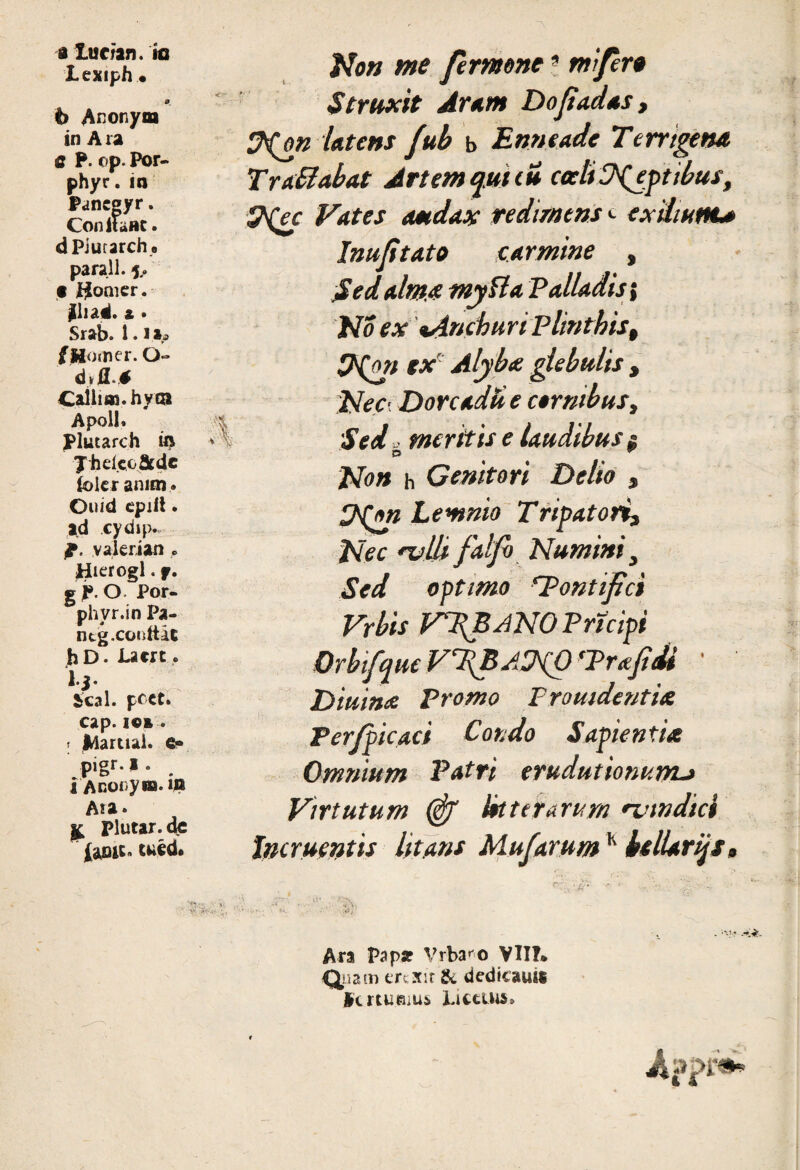 a Lucian. in
Lexiph.
b Anonym
in Ara
c P. op. Por-
phyr. in
Panegyr.
Constant.
d Plutarch.
parall. 5.
e Homer.
Iliad. 2.
Srab. l. 12.
f Homer. O-
diss.
Callim. hym
Apoll.
Plutarch in
Theseo & de
soler anim.
Ouid epist.
ad cydip.
P. valerian.
Hierogl.
g P. O. Por-
phyr. in Pa-
neg. constāt
h D. Laert.
l.3.
Scal. poet.
cap.
Martial. e-
pigr. 1.
i Anonym. in
Ara.
K Plutar. de
sanit. tuēd.
Non me sermone a misero
Struxit Aram Dosiadas,
Non latens sub b Enneade Terrigena
Tractabat Artem qui cū cœli Neptibus,
Nec Vates audax redimens c exilium
Inusitato carmine,
Sed almæ mysta Palladis;
Nō ex Anchuri Plinthis,
Non ex Alybæ glebulis,
Nec f Dorcadū e cornibus,
Sed g meritis e laudibus;
Non h Genitori Delio,
Non Lemnio Tripatori,
Nec vlli falso Numini,
Sed optimo Pontifici
Vrbis VRBANO Prīcipi
Orbisque VRBANO Præsidi
Diuinæ Promo Prouidentiæ
Perspicaci Condo Sapientiæ
Omnium Patri erudutionum
Virtutum & litterarum vindici
Incruentis litans Musarum k bellarijs.
Ara Papæ Vrbano VIII.
Quam erexit & dedicauit
Fortunius Licetus.
Appro-